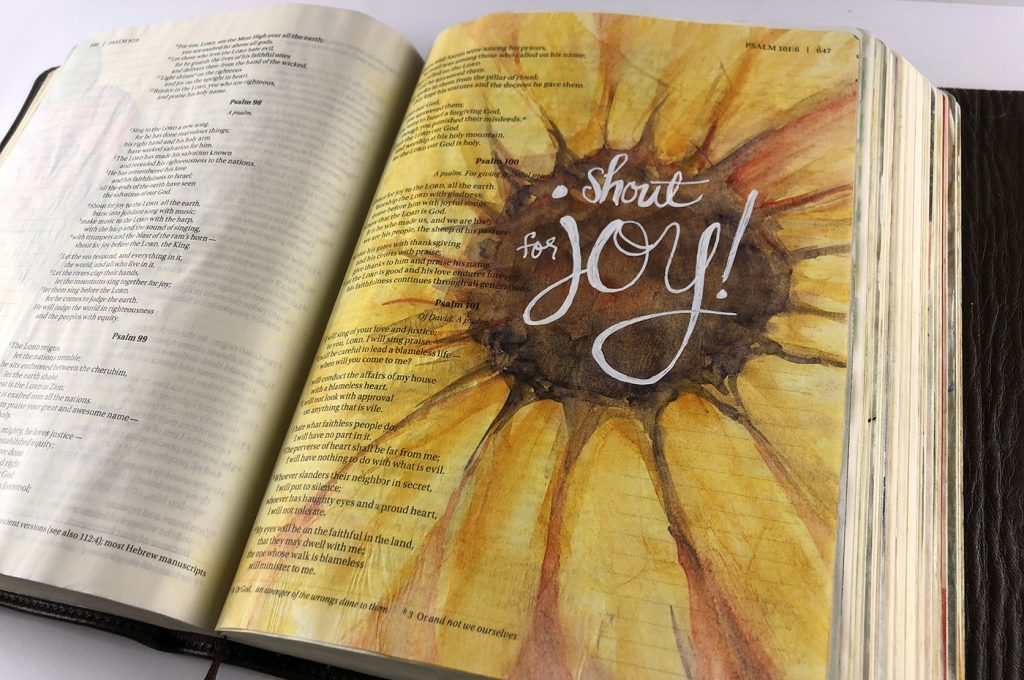 PSALM 97:9
For you, LORD, are the Most High over all the earth;
you are exalted far above all gods.
Let those who love the LORD hate evil,
for he guards the lives of his faithful ones
and delivers them from the hand of the wicked.
Light shines on the righteous
and joy on the upright in heart.
Rejoice in the LORD, you who are righteous,
and praise his holy name.
Psalm 98
A psalm.
Sing to the LORD a new song,
for he has done marvelous things;
his right hand and his holy arm
have worked salvation for him.
The LORD has made his salvation known
and revealed his righteousness to the nations.
He has remembered his love
and his faithfulness to Israel;
all the ends of the earth have seen
the salvation of our God.
Shout for joy to the LORD, all the earth,
burst into jubilant song with music;
make music to the LORD with the harp,
with the harp and the sound of singing,
with trumpets and the blast of the ram's horn —
shout for joy before the LORD, the King.
Let the sea resound, and everything in it,
the world, and all who live in it.
Let the rivers clap their hands,
let the mountains sing together for joy;
let them sing before the LORD,
for he comes to judge the earth.
He will judge the world in righteousness
and the peoples with equity.
Psalm 99
The LORD reigns,
let the nations tremble;
he sits enthroned between the cherubim,
let the earth shake.
is the LORD in Zion;
is exalted over all the nations.
praise your great and awesome name —
holy.
mighty, he loves justice —
established equity;
done
right.
God
footstool;
ancient versions (see also 112:4); most Hebrew manuscripts
PSALM 101:6 | 647
and Aaron were among his priests,
was among those who called on his name;
called on the LORD
answered them.
to them from the pillar of cloud;
kept his statutes and the decrees he gave them.
our God,
answered them;
to Israel a forgiving God,
though you punished their misdeeds.
the LORD our God
and worship at his holy mountain,
for the LORD our God is holy.
Psalm 100
A psalm. For giving grateful praise.
Shout for joy to the LORD, all the earth.
Worship the LORD with gladness;
come before him with joyful songs.
that the LORD is God.
It is he who made us, and we are his
we are his people, the sheep of his pasture.
his gates with thanksgiving
and his courts with praise;
give thanks to him and praise his name.
the LORD is good and his love endures forever;
his faithfulness continues through all generations.
Psalm 101
Of David. A psalm.
I will sing of your love and justice;
to you, LORD, I will sing praise.
I will be careful to lead a blameless life —
when will you come to me?
I will conduct the affairs of my house
with a blameless heart.
I will not look with approval
on anything that is vile.
I hate what faithless people do;
I will have no part in it.
The perverse of heart shall be far from me;
I will have nothing to do with what is evil.
Whoever slanders their neighbor in secret,
I will put to silence;
whoever has haughty eyes and a proud heart,
I will not tolerate.
My eyes will be on the faithful in the land,
that they may dwell with me;
the one whose walk is blameless
will minister to me.
God, an avenger of the wrongs done to them b 3 Or and not we ourselves
shout
for
joy!